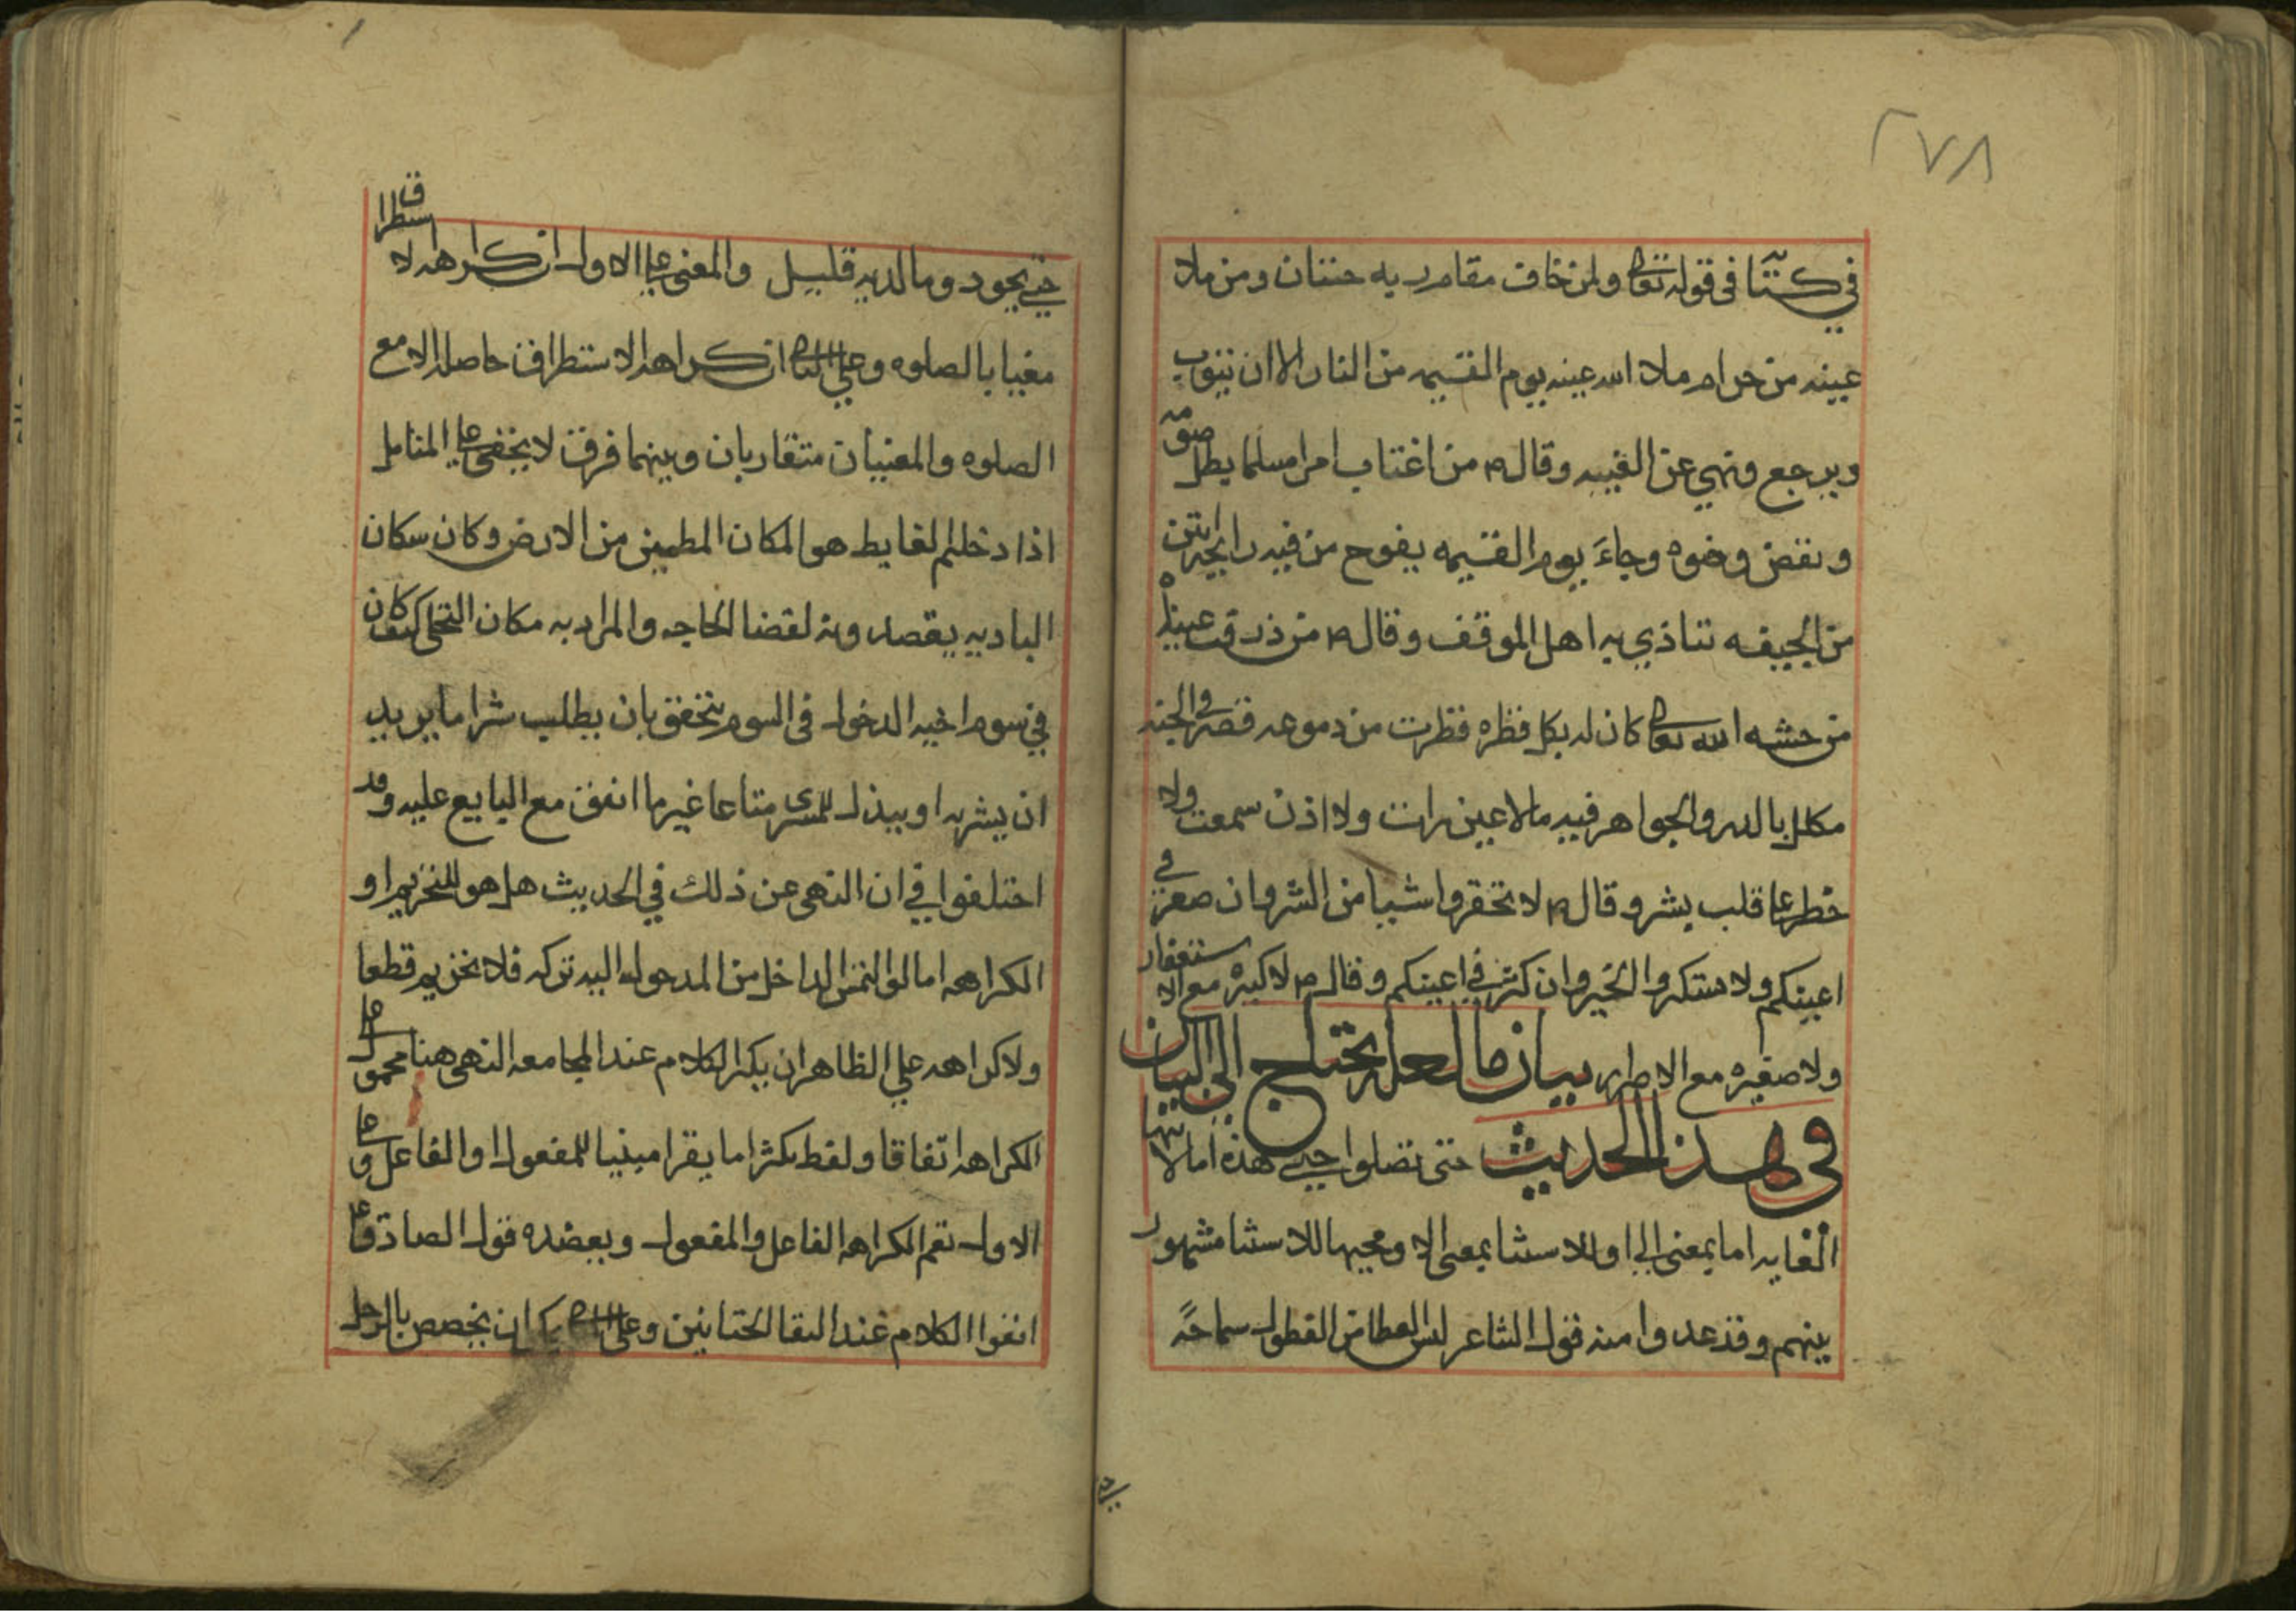 ٢٧٨
في كتابه في قوله تعالى ولمن خاف مقام ربه جنتان ومن ملا
عينه من حرام ملا الله عينه يوم القيمه من النار الا ان يتوب
ويرجع ونهي عن الغيبه وقال ص من اغتاب امرا مسلما بطل صومه
ونقض وضوه وجاء يوم القيمه يفوح من فيه رايحه انتن
من الجيفه تتاذي به اهل الموقف وقال ص من ذرفت عيناه
من خشيه الله تعالى كان له بكل قطره قطرت من دموعه قصر في الجنه
مكلل بالدر والجواهر فيه مالا عين رات ولا اذن سمعت ولا
خطر على قلب بشر وقال ص لا تحقروا شيا من الشر وان صغر في
اعينكم ولا ستكثروا الخير وان كثر في اعينكم وقال ص لا كبيره مع الاستغفار
ولا صغيره مع الاصرار بيان ما لعله يحتاج الى البيان
في هذا الحديث حتى تصلوا حتى هذه اما لانتها
الغايه اما بمعنى الى او للاستثنا بمعنى الا ومجيها للاستثنا مشهور
بينهم وقد عدوا منه قول الشاعر ليس العطا من الفضول سماحة
حتى تجود وما لديه قليل والمعنى على الاول ان كراهه الاستطراق
مغيا بالصلوه وعلى الثاني ان كراهه الاستطراق حاصله الا مع
الصلوه والمعنيان متقاربان وبينهما فرق لا يخفى على المتامل
اذا دخلتم الغايط هو المكان المطمين من الارض وكان سكان
الباديه يقصدونه لقضا الحاجه والمراد به مكان التخلي كيف كان
في سوم اخيه الدخول في السوم يتحقق بان يطلب شرا ما يريد
ان يشتريه او يبذل للمشتري متاعا غير ما اتفق مع البايع عليه وقد
اختلفوا في ان النهي عن ذلك في الحديث هل هو للتحريم او
الكراهه اما لو التمس الداخل من المدخول اليه تركه فلا تحريم قطعا
ولا كراهه على الظاهر ان يكثر الكلام عند المجامعه النهي هنا محمول على
الكراهه اتفاقا ولفظ يكثر اما يقرا مبنيا للمفعول او الفاعل وعلى
الاول تعم الكراهه الفاعل والمفعول ويعضده قول الصادق ع
اتقوا الكلام عند التقا الختانين وعلى الثاني يمكن ان يخصص بالرجل